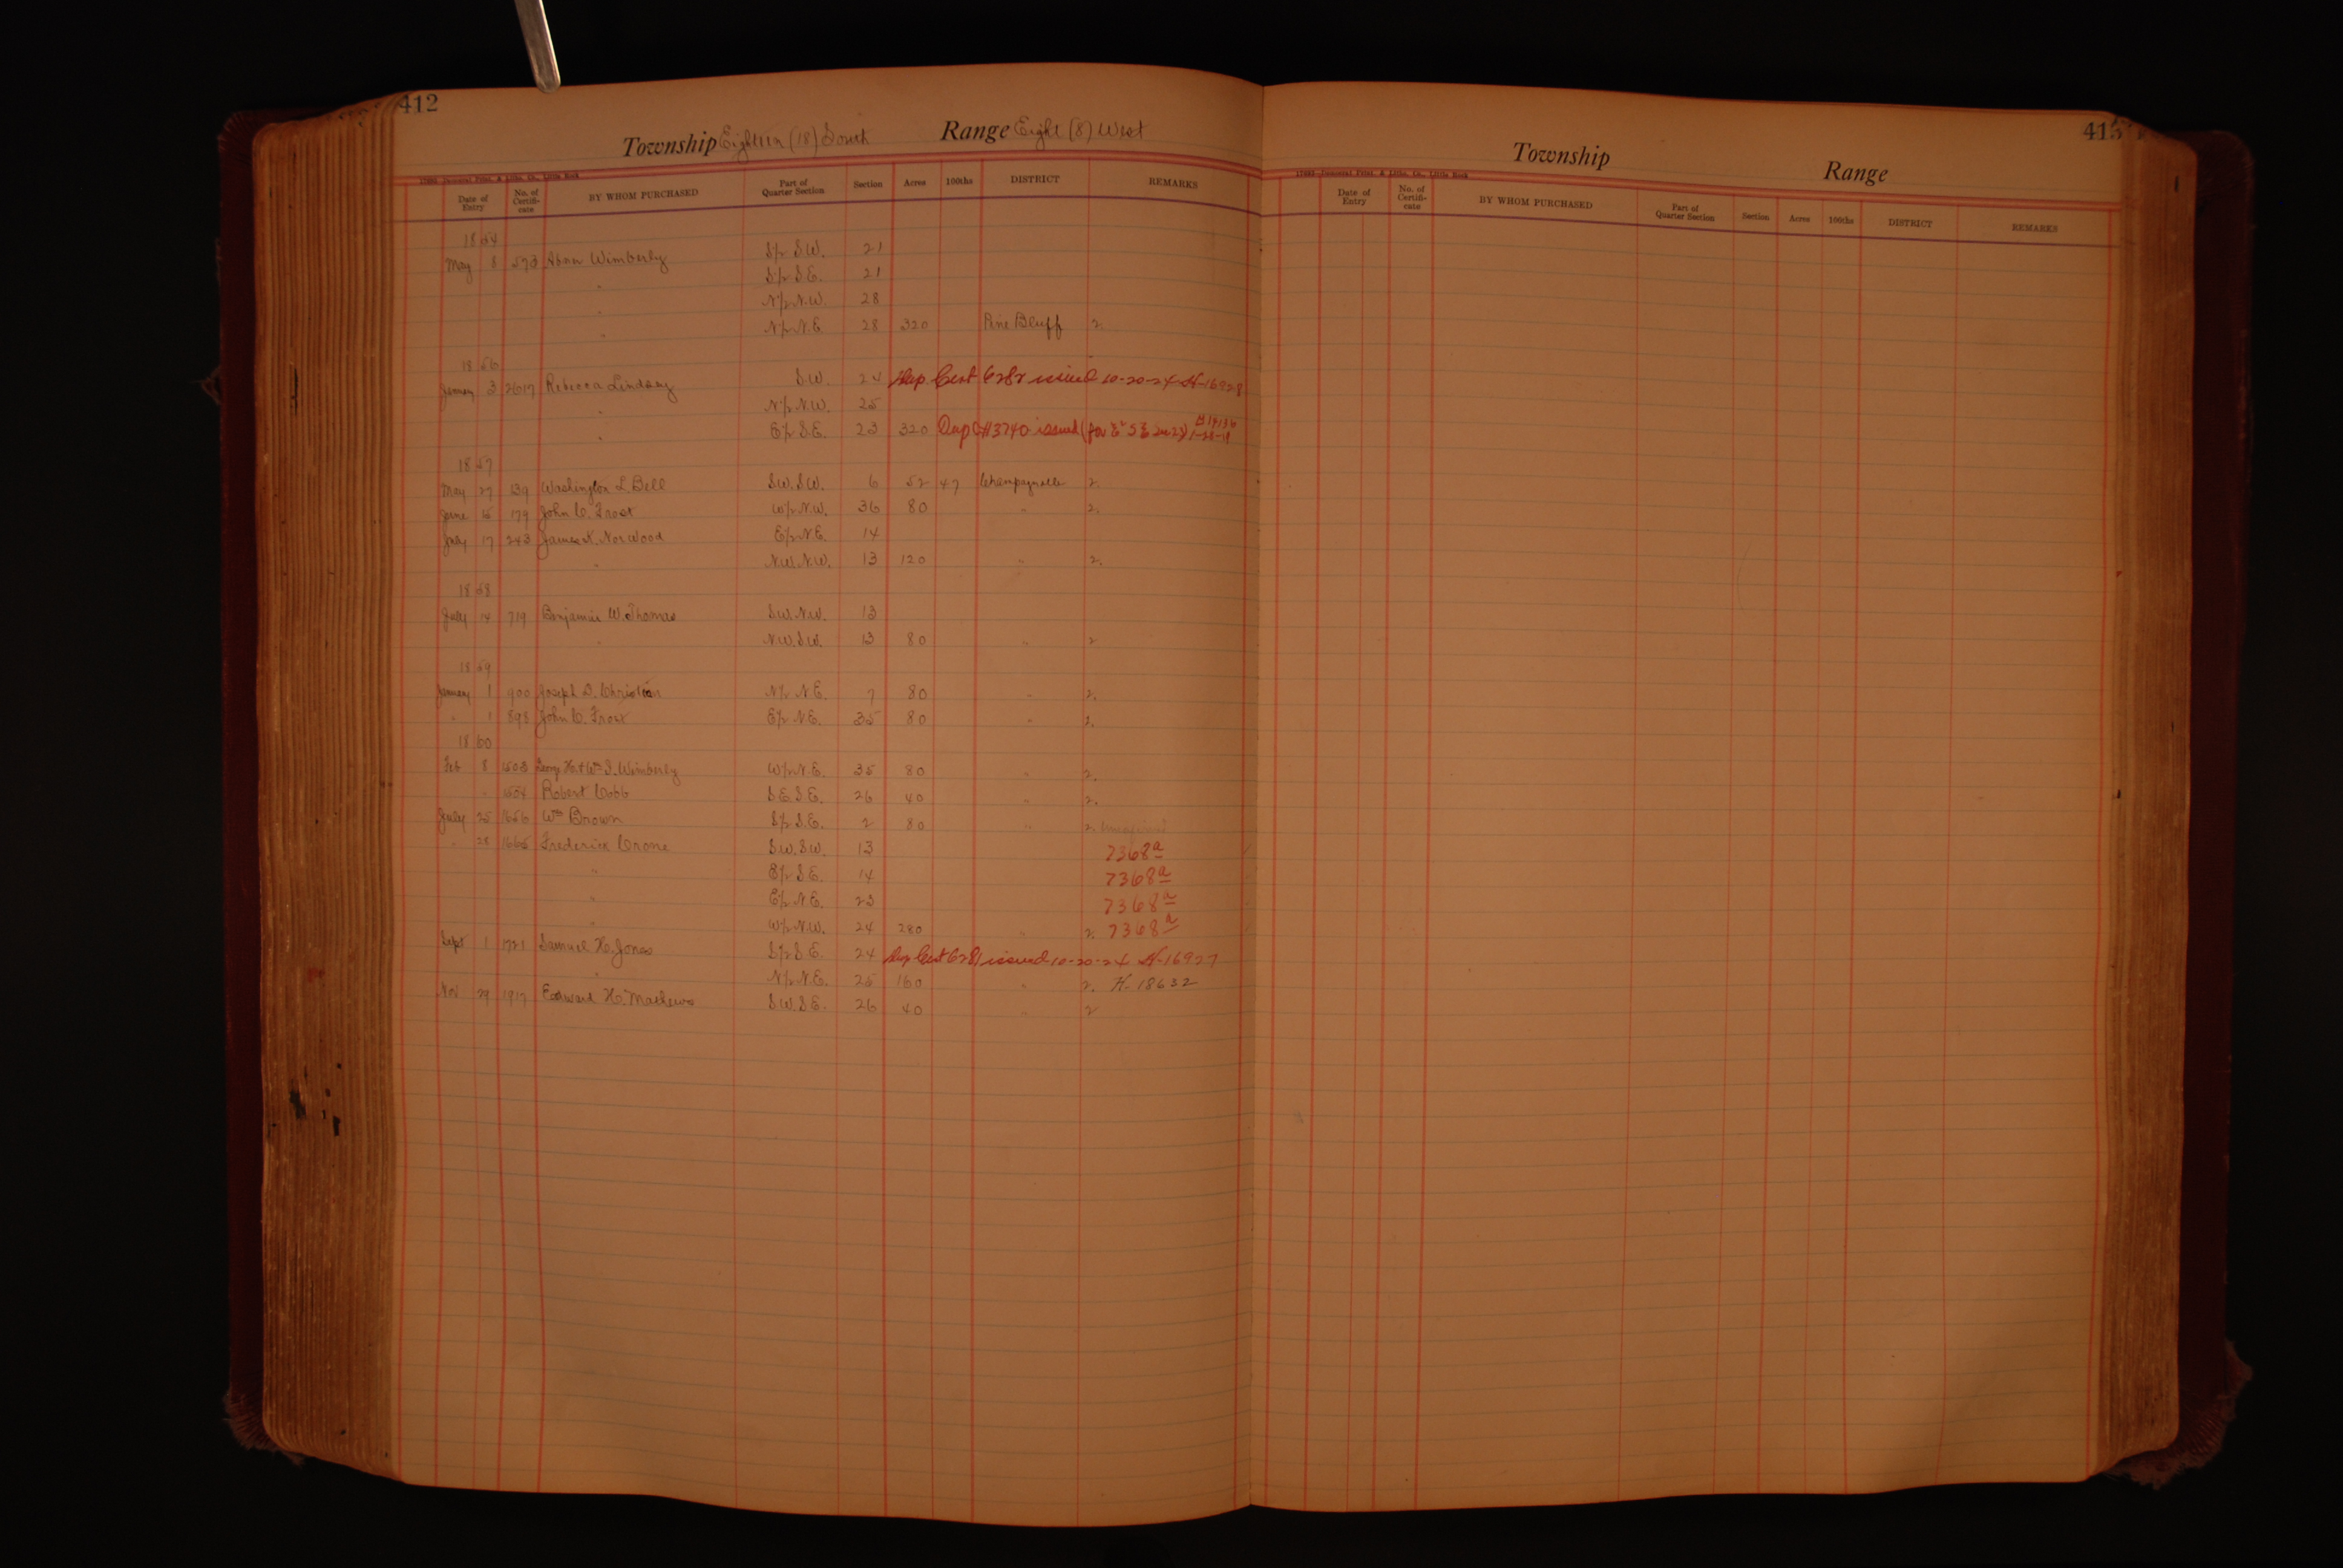 412
Township Eighteen (18) South Range Eight (8) West
17682—Democrat Print. & Litho. Co., Little Rock
Date of Entry No. of Certifi-cate BY WHOM PURCHASED Part of Quarter Section Section Acres 100ths DISTRICT REMARKS
1854
May 8 573 Abner Wimberly S½ S.W. 21
" S½ S.E. 21
" N½ N.W. 28
" N½ N.E. 28 320 Pine Bluff 2.
1856
January 3 2617 Rebecca Lindsay S.W. 24 Dup. Cert 6282 issued 10-20-24 H-16928
" N½ N.W. 25
" E½ S.E. 23 320 Dup C #3740 issued (for E² S E Sec 23)
1857
May 27 139 Washington L. Bell S.W. S.W. 6 52 47 Champagnolle 2.
June 15 179 John C. Frost W½ N.W. 36 80 " 2.
July 17 243 James K. Norwood E½ N.E. 14
" N.W. N.W. 13 120 " 2.
1858
July 14 719 Benjamin W. Thomas S.W. N.W. 13
" N.W. S.W. 13 80 " 2
1859
January 1 900 Joseph D. Christian N½ N.E. 7 80 " 2.
" 1 898 John C. Frost E½ N.E. 35 80 " 2.
1860
Feb 8 1503 W½ N.E. 35 80 " 2.
" 1504 Robert Cobb S.E. S.E. 26 40 " 2.
July 25 1656 Wm Brown S½ S.E. 2 80 " 2.
" 28 1665 Frederick Crone S.W. S.W. 13 7368a
" E½ S.E. 14 7368a
" E½ N.E. 23 7368a
" W½ N.W. 24 280 " 2. 7368a
Sept 1 1721 Samuel H. Jones S½ S.E. 24 Dup Cert 6281 issued 10-20-24 H-16927
" N½ N.E. 25 160 " 2. H-18632
Nov 29 1917 Edward H. Mathews S.W. S.E. 26 40 " 2
415
Township Range
17682—Democrat Print. & Litho. Co., Little Rock
Date of Entry No. of Certifi-cate BY WHOM PURCHASED Part of Quarter Section Section Acres 100ths DISTRICT REMARKS